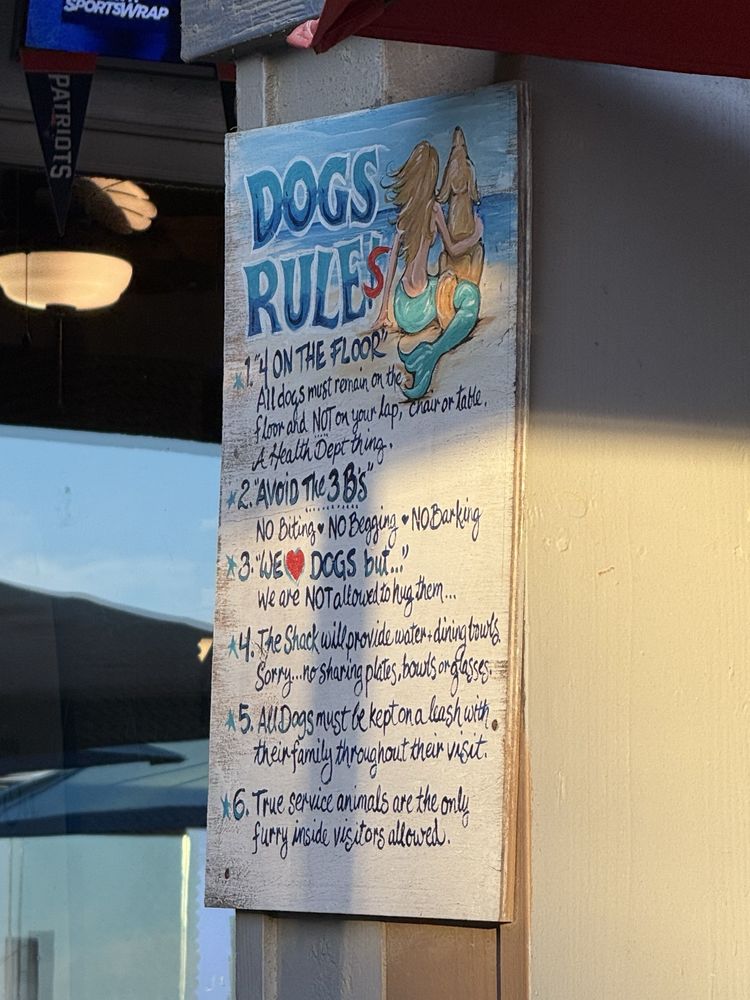 SPORTSWRAP
PATRIOTS
DOGS
RULE'S
1. "4 ON THE FLOOR"
All dogs must remain on the
floor and NOT on your lap, chair or table.
A Health Dept thing.
2. "AVOID The 3 B's"
NO Biting ♥ NO Begging ♥ NO Barking
3. "WE ♥ DOGS but..."
We are NOT allowed to hug them...
4. The Shack will provide water + dining bowls
Sorry... no sharing plates, bowls or glasses.
5. All Dogs must be kept on a leash with
their family throughout their visit.
6. True service animals are the only
furry inside visitors allowed.